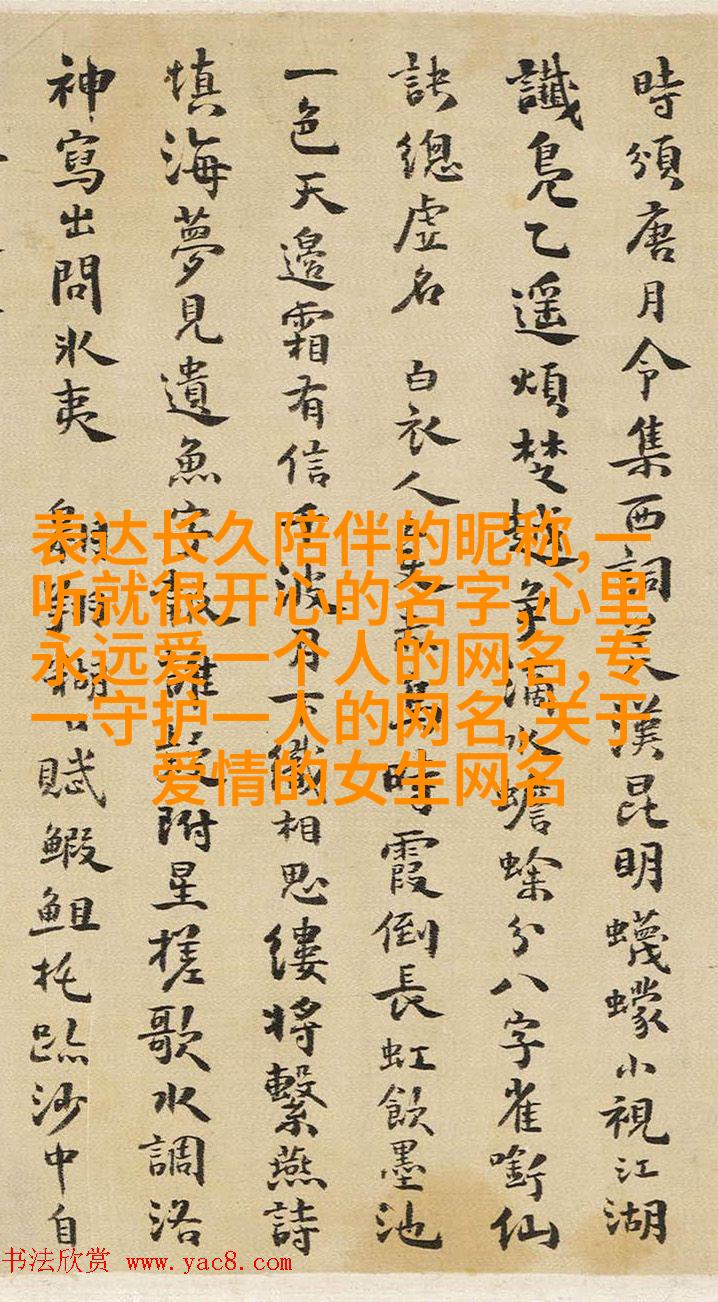 時頒唐月令集西詞美漢昆明蠛蠓小視江湖
讖鳧乙遥煩楚越爭滴水蟾蜍分八字雀銜仙
訣總虚名 白衣人
時霞倒長虹飲墨池
一色天邊霜有信
波月下織相思縷將繫燕詩
填海夢見遺魚字
附星槎歌水調洛
神寫出問冰夷
賦鰕䱉托跡沙中自
表达长久陪伴的昵称,一
听就很开心的名字,心里
永远爱一个人的网名,专
一守护一人的网名,关于
爱情的女生网名
书法欣赏 www.yac8.com